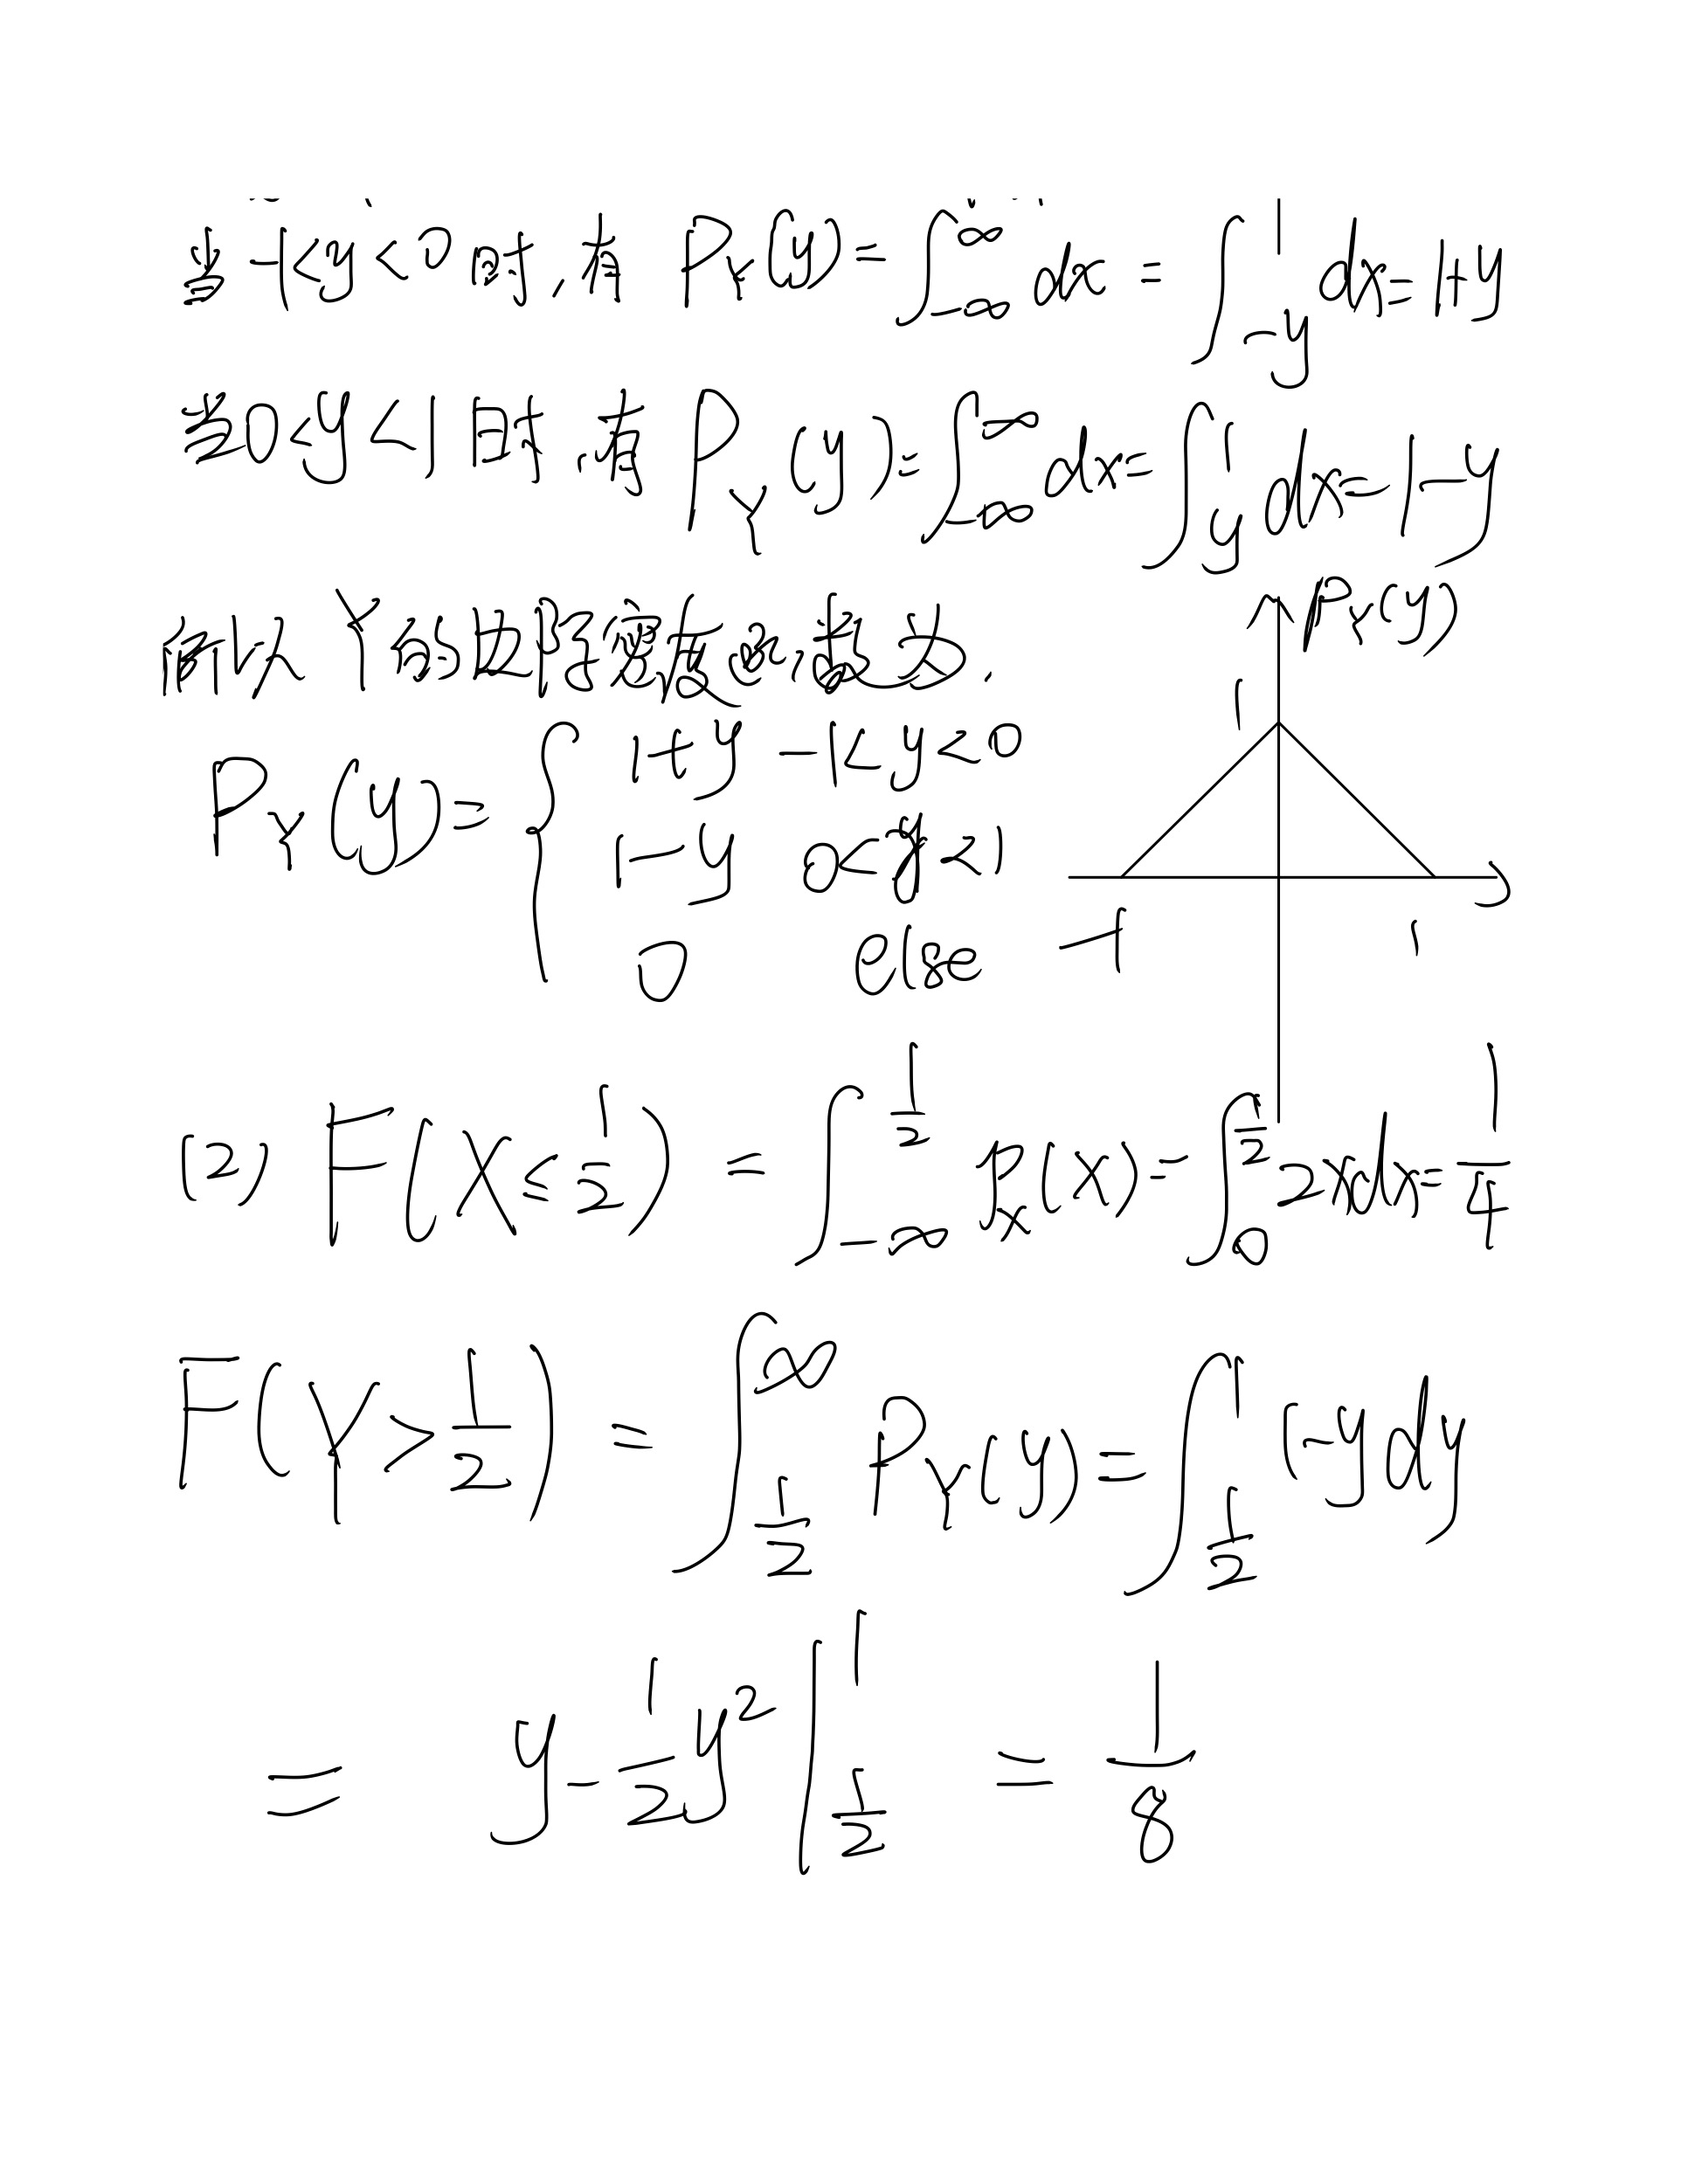 当-1<y<0时,有 P_Y(y)=∫_{-∞}^{∞}dx=∫_{-y}^{1}dx=1+y
当0<y<1时,有P_Y(y)=∫_{-∞}^{∞}dx=∫_{y}^{1}dx=1-y
所以Y的边际密度函数为
P_Y(y)={ 1+y -1<y<0
1-y 0<y<1
0 else
P_Y(y)
1
-1 1
(2) F(X≤1/2)=∫_{-∞}^{1/2}P_X(x)=∫_{0}^{1/2}2xdx=1/4
F(Y>1/2)=∫_{1/2}^{∞}P_Y(y)=∫_{1/2}^{1}1-ydy
=y-1/2y²|_{1/2}^{1}=1/8